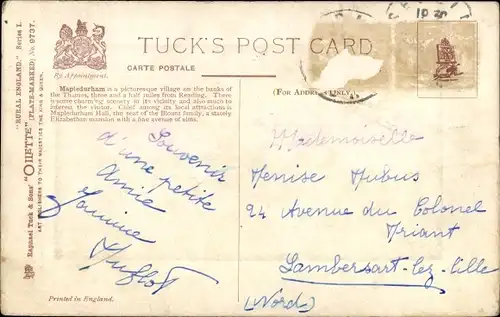 TUCK'S POST CARD
CARTE POSTALE
By Appointment.
(FOR ADDRESS ONLY)
Mapledurham is a picturesque village on the banks of
the Thames, three and a half miles from Reading. There
is some charming scenery in its vicinity and also much to
interest the visitor. Chief among its local attractions is
Mapledurham Hall, the seat of the Blount family, a stately
Elizabethan mansion with a fine avenue of elms.
"RURAL ENGLAND." Series I.
Raphael Tuck & Sons' "OILETTE" (PLATE-MARKED) No. 9737.
ART PUBLISHERS TO THEIR MAJESTIES THE KING & QUEEN.
Souvenir
d'une petite
amie
Janine
Mademoiselle
Denise Dubus
24 Avenue du Colonel
Driant
Lambersart-lez-Lille
(Nord)
Printed in England.